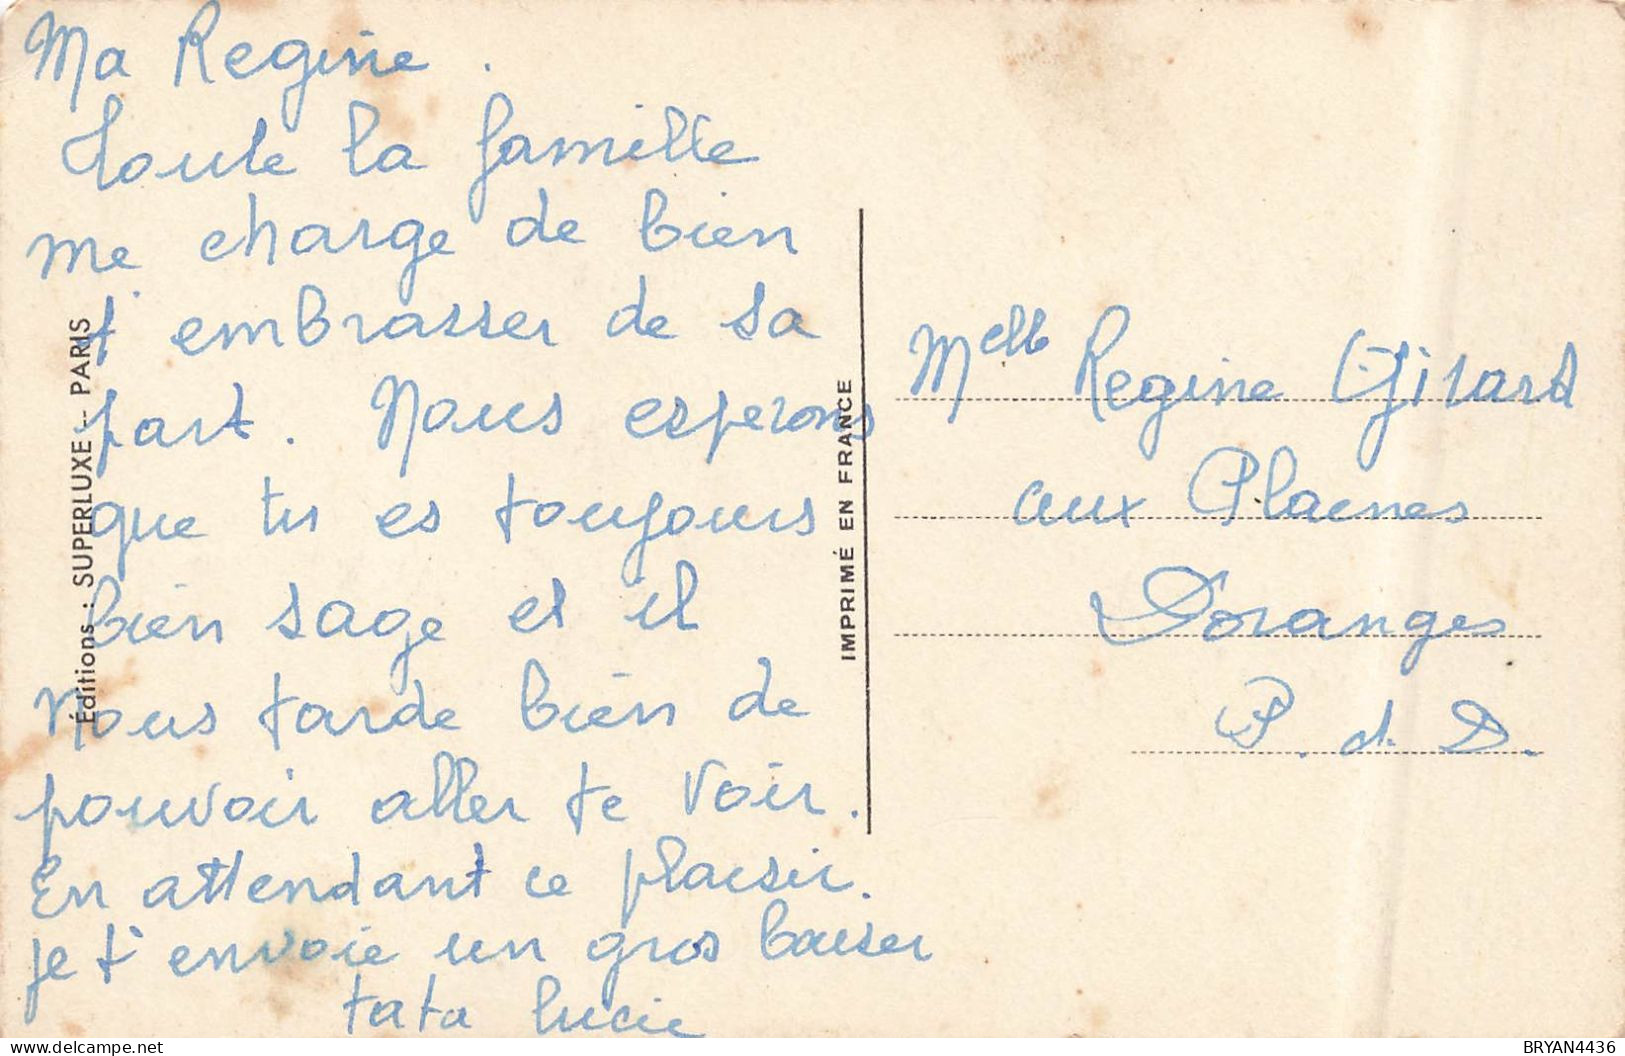 Ma Regine.
Toute la famille
me charge de bien
t'embrasser de sa
part. Nous esperons
que tu es toujours
bien sage et il
nous tarde bien de
pouvoir aller te voir.
En attendant ce plaisir.
je t'envoie un gros baiser
tata Lucie
Éditions : SUPERLUXE - PARIS
IMPRIMÉ EN FRANCE
Melle Regine Girard
aux Plaines
Doranges
P. d. D.
delcampe.net
BRYAN4436